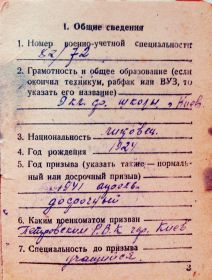 1. Общие сведения
1. Номер военно-учетной специальности
2. Грамотность и общее образование (если
окончил техникум, рабфак или ВУЗ, то
указать его название)
9 кл. ср. школы, Киев
3. Национальность
4. Год рождения 1924
5. Год призыва (указать также — нормаль-
ный или досрочный призыв)
1941
6. Каким военкоматом призван
Р.В.К гор. Киев
7. Специальность до призыва
учащийся
3